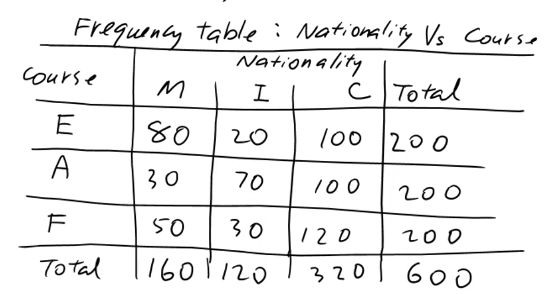 Frequency table : Nationality Vs Course
Nationality
Course M I C Total
E 80 20 100 200
A 30 70 100 200
F 50 30 120 200
Total 160 120 320 600